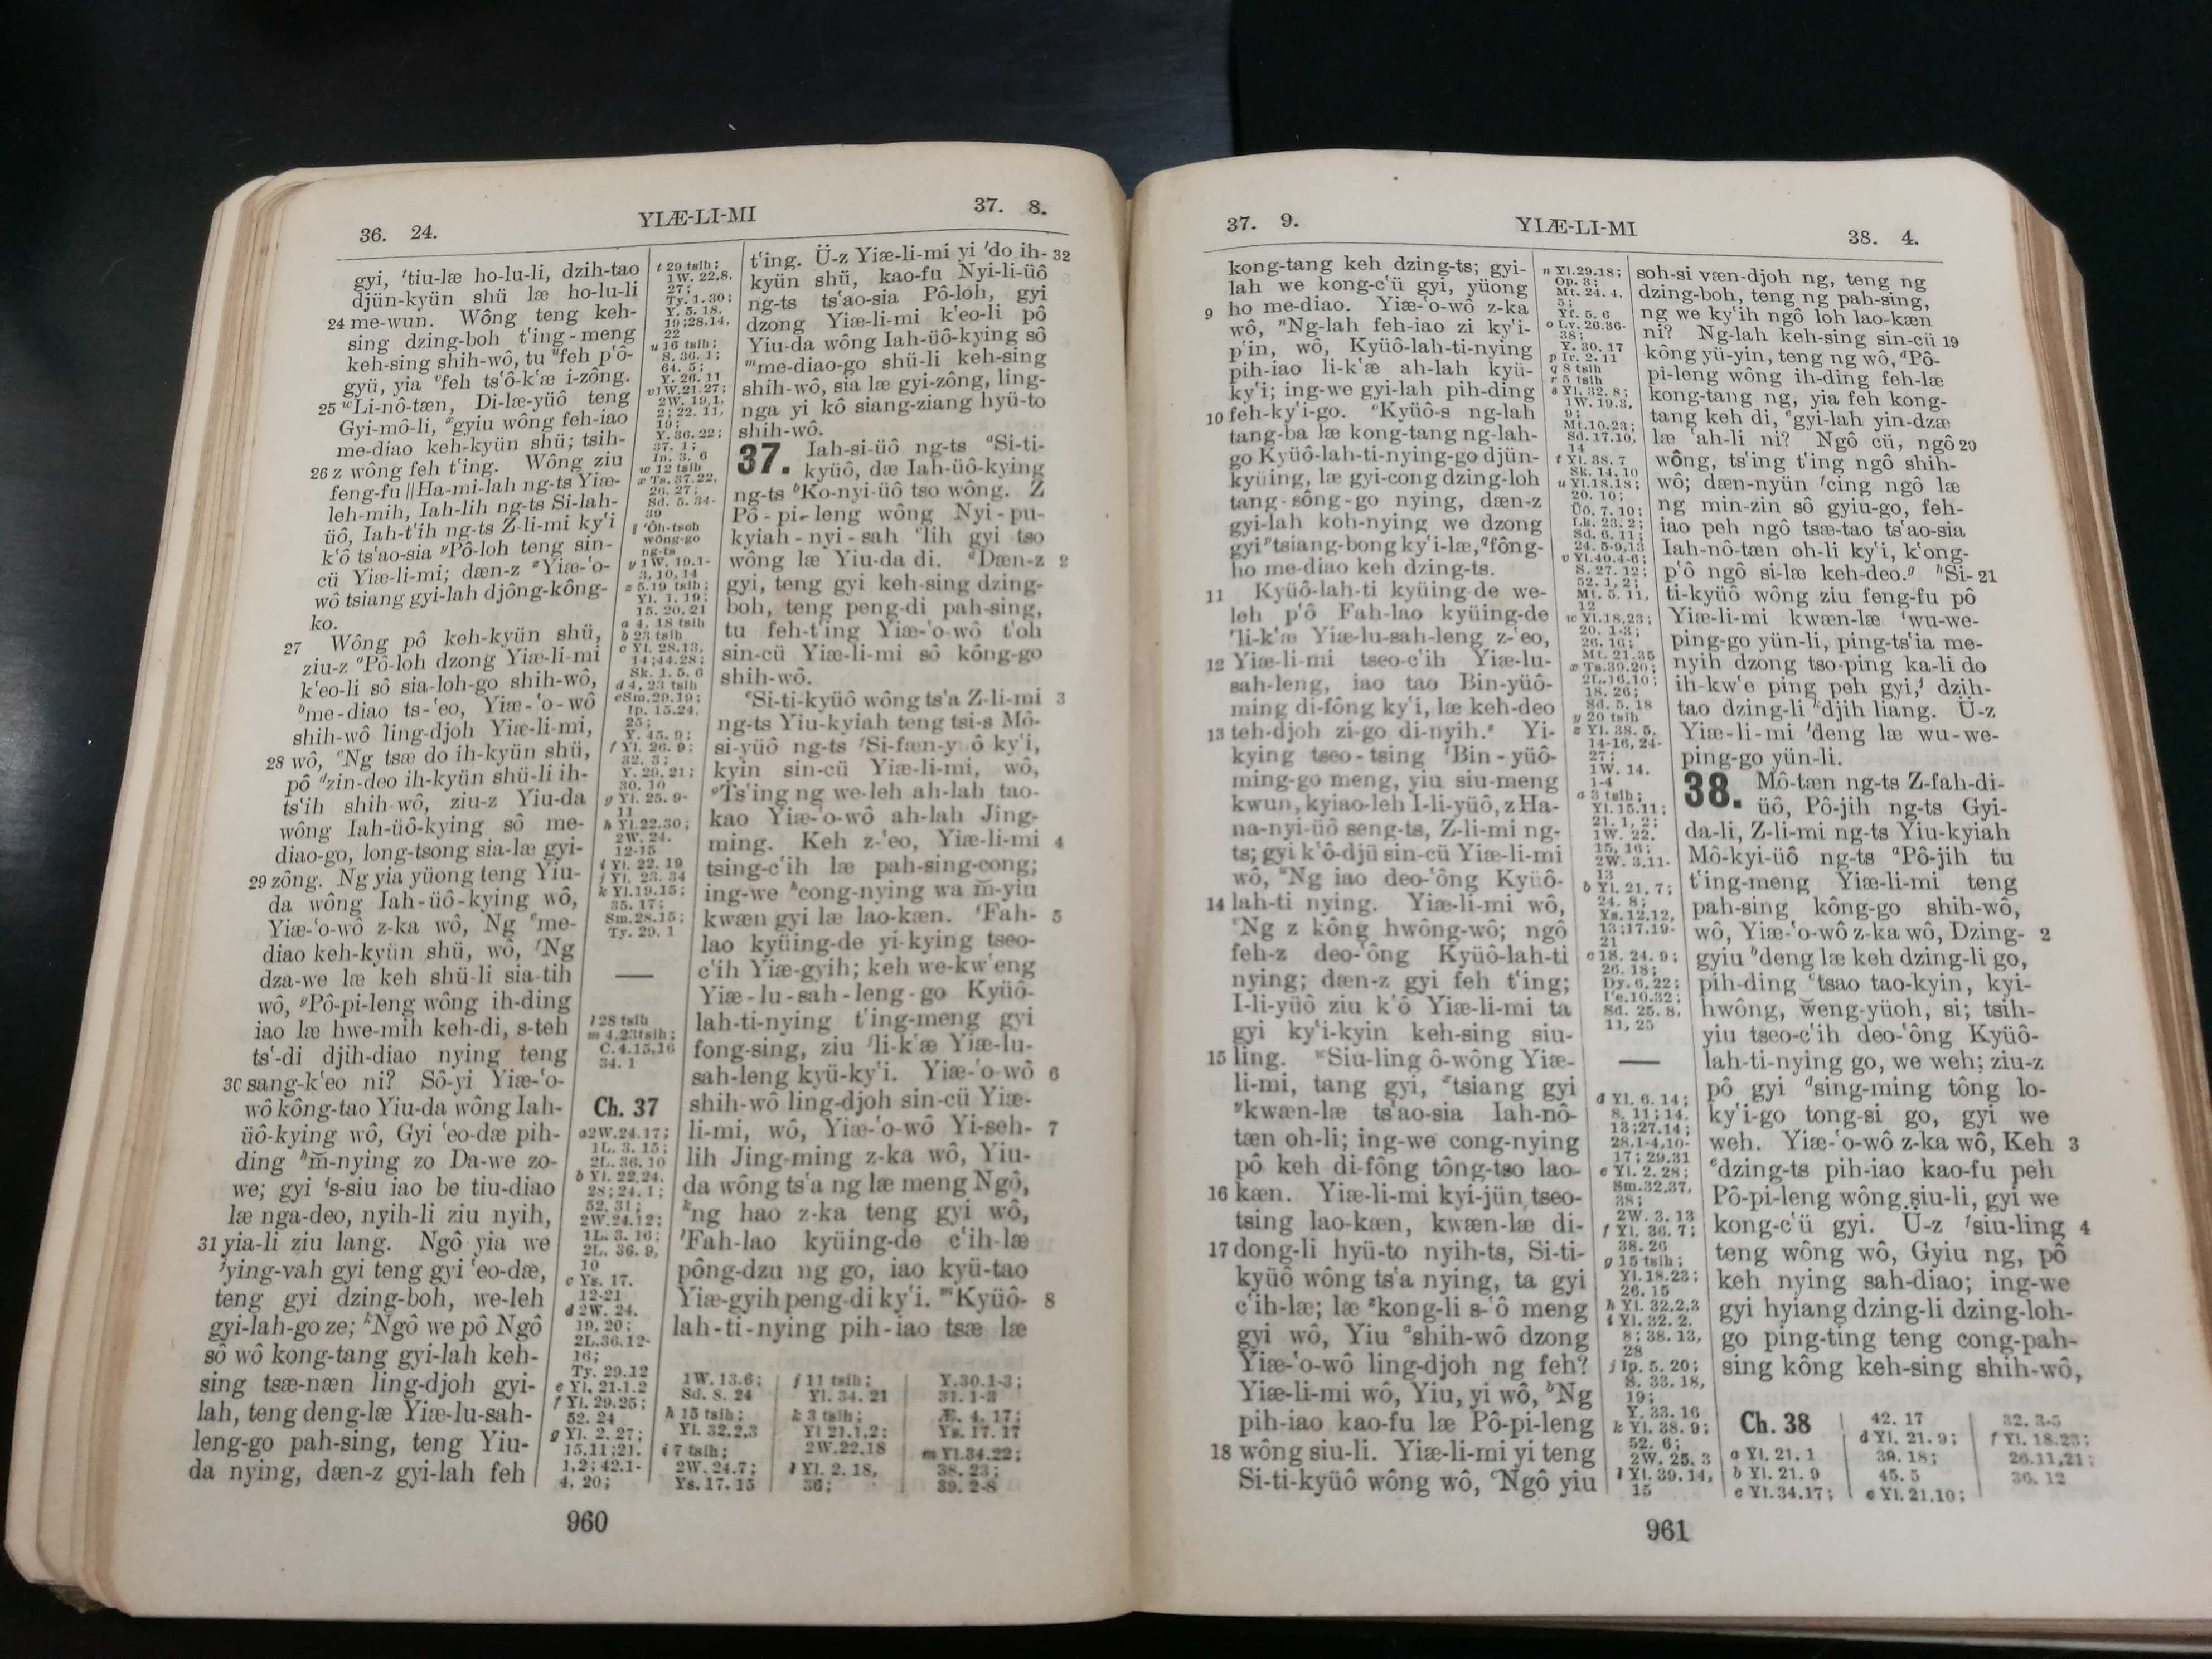 36. 24.
YIÆ-LI-MI
37. 8.
gyi, ᶠtiu-læ ho-lu-li, dzih-tao
djün-kyün shü læ ho-lu-li
24 me-wun. Wông teng keh-
sing dzing-boh t‘ing-meng
keh-sing shih-wô, tu ᵘfeh p‘ô-
gyü, yia ᵛfeh ts‘ô-k‘æ i-zông.
25 ʷLi-nô-tæn, Di-læ-yüô teng
Gyi-mô-li, ˣgyiu wông feh-iao
me-diao keh-kyün shü; tsih-
26 z wông feh t‘ing. Wông ziu
feng-fu ‖Ha-mi-lah ng-ts Yiæ-
leh-mih, Iah-lih ng-ts Si-lah-
üô, Iah-t‘ih ng-ts Z-li-mi ky‘i
k‘ô ts‘ao-sia ʸPô-loh teng sin-
cü Yiæ-li-mi; dæn-z ᶻYiæ-‘o-
wô tsiang gyi-lah djông-kông-
ko.
27 Wông pô keh-kyün shü,
ziu-z ᵃPô-loh dzong Yiæ-li-mi
k‘eo-li sô sia-loh-go shih-wô,
ᵇme-diao ts-‘eo, Yiæ-‘o-wô
shih-wô ling-djoh Yiæ-li-mi,
28 wô, ᶜNg tsæ do ih-kyün shü,
pô ᵈzin-deo ih-kyün shü-li ih-
ts‘ih shih-wô, ziu-z Yiu-da
wông Iah-üô-kying sô me-
diao-go, long-tsong sia-læ gyi-
29 zông. Ng yia yüong teng Yiu-
da wông Iah-üô-kying wô,
Yiæ-‘o-wô z-ka wô, Ng ᵉme-
diao keh-kyün shü, wô, ᶠNg
dza-we læ keh shü-li sia-tih
wô, ᵍPô-pi-leng wông ih-ding
iao læ hwe-mih keh-di, s-teh
ts‘-di djih-diao nying teng
30 sang-k‘eo ni? Sô-yi Yiæ-‘o-
wô kông-tao Yiu-da wông Iah-
üô-kying wô, Gyi ‘eo-dæ pih-
ding ʰm̆-nying zo Da-we zo-
we; gyi ⁱs-siu iao be tiu-diao
læ nga-deo, nyih-li ziu nyih,
31 yia-li ziu lang. Ngô yia we
ʲying-vah gyi teng gyi ‘eo-dæ,
teng gyi dzing-boh, we-leh
gyi-lah-go ze; ᵏNgô we pô Ngô
sô wô kong-tang gyi-lah keh-
sing tsæ-næn ling-djoh gyi-
lah, teng deng-læ Yiæ-lu-sah-
leng-go pah-sing, teng Yiu-
da nying, dæn-z gyi-lah feh
t 29 tsih;
1W. 22.8.
27;
Ty. 1.30;
Y. 5. 18.
19;28.14.
22
u 16 tsih;
S. 36. 1;
64. 5;
Y. 26. 11
v1W.21.27;
2W. 19.1,
2; 22. 11,
19;
Y. 36. 22;
37. 1;
In. 3. 6
w 12 tsih
x Ts. 37.22,
26. 27;
Sd. 5. 34-
39
‖ ‘Ôh-tsoh
wông-go
ng-ts
y 1W. 19.1-
3, 10, 14
z 5.19 tsih;
Yl. 1. 19;
15. 20, 21
a 4. 18 tsih
b 23 tsih
c Yl. 28.13,
14;44.28;
Sk. 1. 5. 6
d 4, 23 tsih
eSm.29.19;
Ip. 15.24,
25;
Y. 45. 9;
f Yl. 26. 9;
32. 3;
Y. 29. 21;
30. 10
g Yl. 25. 9-
11
h Yl.22.30;
2W. 24.
12-15
i Yl. 22. 19
j Yl. 23. 34
k Yl.19.15;
35. 17;
Sm.28.15;
Ty. 29. 1
l 28 tsih
m 4,23tsih;
C. 4.15,16
34. 1
Ch. 37
a2W.24.17;
1L. 3. 15;
2L. 36. 10
b Yl. 22.24.
28; 24. 1;
52. 31;
2W.24.12;
1L. 3. 16;
2L. 36. 9,
10
c Ys. 17.
12-21
d 2W. 24.
19, 20;
2L.36.12-
16;
Ty. 29.12
e Yl. 21.1.2
f Yl. 29.25;
52. 24
g Yl. 2. 27;
15.11;21.
1,2; 42.1-
4, 20;
t‘ing. Ü-z Yiæ-li-mi yi ˡdo ih- 32
kyün shü, kao-fu Nyi-li-üô
ng-ts ts‘ao-sia Pô-loh, gyi
dzong Yiæ-li-mi k‘eo-li pô
Yiu-da wông Iah-üô-kying sô
ᵐme-diao-go shü-li keh-sing
shih-wô, sia læ gyi-zông, ling-
nga yi kô siang-ziang hyü-to
shih-wô.
37. Iah-si-üô ng-ts ᵃSi-ti-
kyüô, dæ Iah-üô-kying
ng-ts ᵇKo-nyi-üô tso wông. Z
Pô-pi-leng wông Nyi-pu-
kyiah-nyi-sah ᶜlih gyi tso
wông læ Yiu-da di. ᵈDæn-z 2
gyi, teng gyi keh-sing dzing-
boh, teng peng-di pah-sing,
tu feh-t‘ing Yiæ-‘o-wô t‘oh
sin-cü Yiæ-li-mi sô kông-go
shih-wô.
ᵉSi-ti-kyüô wông ts‘a Z-li-mi 3
ng-ts Yiu-kyiah teng tsi-s Mô-
si-yüô ng-ts ᶠSi-fæn-y ô ky‘i,
kyin sin-cü Yiæ-li-mi, wô,
ᵍTs‘ing ng we-leh ah-lah tao-
kao Yiæ-‘o-wô ah-lah Jing-
ming. Keh z-‘eo, Yiæ-li-mi 4
tsing-c‘ih læ pah-sing-cong;
ing-we ʰcong-nying wa m̆-yiu
kwæn gyi læ lao-kæn. ⁱFah- 5
lao kyüing-de yi-kying tseo-
c‘ih Yiæ-gyih; keh we-kw‘eng
Yiæ-lu-sah-leng-go Kyüô-
lah-ti-nying t‘ing-meng gyi
fong-sing, ziu ʲli-k‘æ Yiæ-lu-
sah-leng kyü-ky‘i. Yiæ-‘o-wô 6
shih-wô ling-djoh sin-cü Yiæ-
li-mi, wô, Yiæ-‘o-wô Yi-seh- 7
lih Jing-ming z-ka wô, Yiu-
da wông ts‘a ng læ meng Ngô,
ᵏng hao z-ka teng gyi wô,
ˡFah-lao kyüing-de c‘ih-læ
pông-dzu ng go, iao kyü-tao
Yiæ-gyih peng-di ky‘i. ᵐKyüô- 8
lah-ti-nying pih-iao tsæ læ
1W. 13.6;
Sd. 8. 24
h 15 tsih;
Yl. 32.2,3
i 7 tsih;
2W. 24.7;
Ys. 17. 15
j 11 tsih;
Yl. 34. 21
k 3 tsih;
Yl 21.1,2;
2W.22.18
l Yl. 2. 18,
36;
Y.30.1-3;
31. 1-3
Æ. 4. 17;
Ys. 17. 17
m Yl.34.22;
38. 23;
39. 2-8
960
37. 9.
YIÆ-LI-MI
38. 4.
kong-tang keh dzing-ts; gyi-
lah we kong-c‘ü gyi, yüong
9 ho me-diao. Yiæ-‘o-wô z-ka
wô, ⁿNg-lah feh-iao zi ky‘i-
p‘in, wô, Kyüô-lah-ti-nying
pih-iao li-k‘æ ah-lah kyü-
ky‘i; ing-we gyi-lah pih-ding
10 feh-ky‘i-go. ᵒKyüô-s ng-lah
tang-ba læ kong-tang ng-lah-
go Kyüô-lah-ti-nying-go djün-
kyüing, læ gyi-cong dzing-loh
tang-sông-go nying, dæn-z
gyi-lah koh-nying we dzong
gyi ᵖtsiang-bong ky‘i-læ, ᑫfông-
ho me-diao keh dzing-ts.
11 Kyüô-lah-ti kyüing-de we-
leh p‘ô Fah-lao kyüing-de
ʳli-k‘æ Yiæ-lu-sah-leng z-‘eo,
12 Yiæ-li-mi tseo-c‘ih Yiæ-lu-
sah-leng, iao tao Bin-yüô-
ming di-fông ky‘i, læ keh-deo
13 teh-djoh zi-go di-nyih.ˢ Yi-
kying tseo-tsing ᵗBin-yüô-
ming-go meng, yiu siu-meng
kwun, kyiao-leh I-li-yüô, z Ha-
na-nyi-üô seng-ts, Z-li-mi ng-
ts; gyi k‘ô-djü sin-cü Yiæ-li-mi
wô, ᵘNg iao deo-‘ông Kyüô-
14 lah-ti nying. Yiæ-li-mi wô,
ᵛNg z kông hwông-wô; ngô
feh-z deo-‘ông Kyüô-lah-ti
nying; dæn-z gyi feh t‘ing;
I-li-yüô ziu k‘ô Yiæ-li-mi ta
gyi ky‘i-kyin keh-sing siu-
15 ling. ʷSiu-ling ô-wông Yiæ-
li-mi, tang gyi, ˣtsiang gyi
ʸkwæn-læ ts‘ao-sia Iah-nô-
tæn oh-li; ing-we cong-nying
pô keh di-fông tông-tso lao-
16 kæn. Yiæ-li-mi kyi-jün tseo-
tsing lao-kæn, kwæn-læ di-
17 dong-li hyü-to nyih-ts, Si-ti-
kyüô wông ts‘a nying, ta gyi
c‘ih-læ; læ ᶻkong-li s-‘ô meng
gyi wô, Yiu ᵃshih-wô dzong
Yiæ-‘o-wô ling-djoh ng feh?
Yiæ-li-mi wô, Yiu, yi wô, ᵇNg
pih-iao kao-fu læ Pô-pi-leng
18 wông siu-li. Yiæ-li-mi yi teng
Si-ti-kyüô wông wô, ᶜNgô yiu
n Yl.29.18;
Op. 3;
Mt. 24. 4.
5;
Yf. 5. 6
o Lv. 26.36-
38;
Y. 30. 17
p Ir. 2. 11
q 8 tsih
r 5 tsih
s Yl. 32. 8;
1W. 19.3,
9;
Mt.10.23;
Sd. 17.10,
14
t Yl. 38. 7
Sk. 14. 10
u Yl.18.18;
20. 10;
Üô. 7. 10;
Lk. 23. 2;
Sd. 6. 11;
24. 5-9,13
v Yl.40.4-6;
S. 27. 12;
52. 1, 2;
Mt. 5. 11,
12
w Yl.18.23;
20. 1-3;
26. 16;
Mt. 21.35
x Ts.39.20;
2L.16.10;
18. 26;
Sd. 5. 18
y 20 tsih
z Yl. 38. 5,
14-16, 24-
27;
1W. 14.
1-4
a 3 tsih;
Yl. 15.11;
21. 1, 2;
1W. 22.
15, 16;
2W. 3.11-
13
b Yl. 21. 7;
24. 8;
Ys. 12.12,
13;17.19-
21
c 18. 24. 9;
26. 18;
Dy. 6. 22;
Pe.10.32;
Sd. 25. 8,
11, 25
d Yl. 6. 14;
8. 11; 14.
13;27.14;
28.1-4,10-
17; 29.31
e Yl. 2. 28;
Sm.32.37,
38;
2W. 3. 13
f Yl. 36. 7;
38. 26
g 15 tsih;
Yl.18.23;
26. 15
h Yl. 32.2,3
i Yl. 32. 2.
8; 38. 13,
28
j Ip. 5. 20;
S. 33. 18,
19;
Y. 33. 16
k Yl. 38. 9;
52. 6;
2W. 25. 3
l Yl. 39. 14,
15
soh-si væn-djoh ng, teng ng
dzing-boh, teng ng pah-sing,
ng we ky‘ih ngô loh lao-kæn
ni? Ng-lah keh-sing sin-cü 19
kông yü-yin, teng ng wô, ᵈPô-
pi-leng wông ih-ding feh-læ
kong-tang ng, yia feh kong-
tang keh di, ᵉgyi-lah yin-dzæ
læ ‘ah-li ni? Ngô cü, ngô 20
wông, ts‘ing t‘ing ngô shih-
wô; dæn-nyün ᶠcing ngô læ
ng min-zin sô gyiu-go, feh-
iao peh ngô tsæ-tao ts‘ao-sia
Iah-nô-tæn oh-li ky‘i, k‘ong-
p‘ô ngô si-læ keh-deo.ᵍ ʰSi- 21
ti-kyüô wông ziu feng-fu pô
Yiæ-li-mi kwæn-læ ⁱwu-we-
ping-go yün-li, ping-ts‘ia me-
nyih dzong tso-ping ka-li do
ih-kw‘e ping peh gyi,ʲ dzih-
tao dzing-li ᵏdjih liang. Ü-z
Yiæ-li-mi ˡdeng læ wu-we-
ping-go yün-li.
38. Mô-tæn ng-ts Z-fah-di-
üô, Pô-jih ng-ts Gyi-
da-li, Z-li-mi ng-ts Yiu-kyiah
Mô-kyi-üô ng-ts ᵃPô-jih tu
t‘ing-meng Yiæ-li-mi teng
pah-sing kông-go shih-wô,
wô, Yiæ-‘o-wô z-ka wô, Dzing- 2
gyiu ᵇdeng læ keh dzing-li go,
pih-ding ᶜtsao tao-kyin, kyi-
hwông, w̆eng-yüoh, si; tsih-
yiu tseo-c‘ih deo-‘ông Kyüô-
lah-ti-nying go, we weh; ziu-z
pô gyi ᵈsing-ming tông lo-
ky‘i-go tong-si go, gyi we
weh. Yiæ-‘o-wô z-ka wô, Keh 3
ᵉdzing-ts pih-iao kao-fu peh
Pô-pi-leng wông siu-li, gyi we
kong-c‘ü gyi. Ü-z ᶠsiu-ling 4
teng wông wô, Gyiu ng, pô
keh nying sah-diao; ing-we
gyi hyiang dzing-li dzing-loh-
go ping-ting teng cong-pah-
sing kông keh-sing shih-wô,
Ch. 38
a Yl. 21. 1
b Yl. 21. 9
c Yl.34.17;
42. 17
d Yl. 21. 9;
39. 18;
45. 5
e Yl.21.10;
32. 3-5
f Yl. 18.23;
26.11,21;
36. 12
961